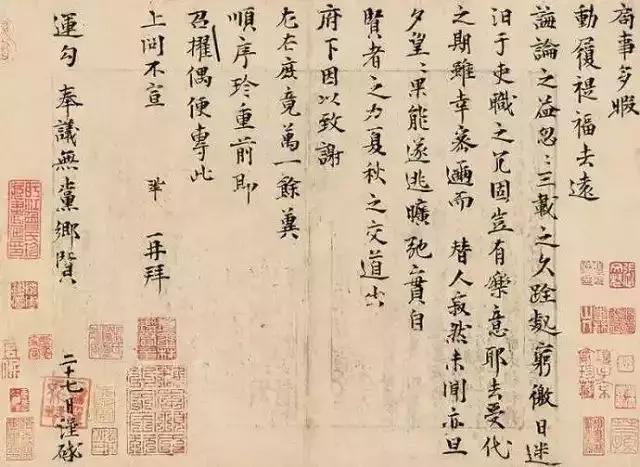 局事多暇
動履禔福去遠
誨論之益忽〻三載之久跧處窮徼日迷
汩于吏職之冗固豈有樂意耶去受代
之期雖幸密邇而替人寂然未聞亦旦
夕望〻果能遂逃曠弛實自
賢者之力夏秋之交道出
府下因以致謝
左右庶竟萬一餘冀
順序珍重前即
召擢偶便專此
上問不宣 鞏 再拜
運勾 奉議無黨鄉賢 二十七日謹啓